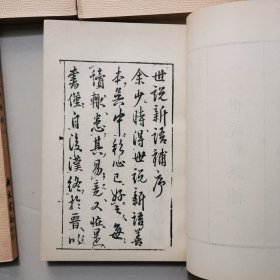 世說新語補序
余少時得世說新語善
本吳中私心已好之每
讀輒患其易竟又怪是
書僅自後漢終於晉以